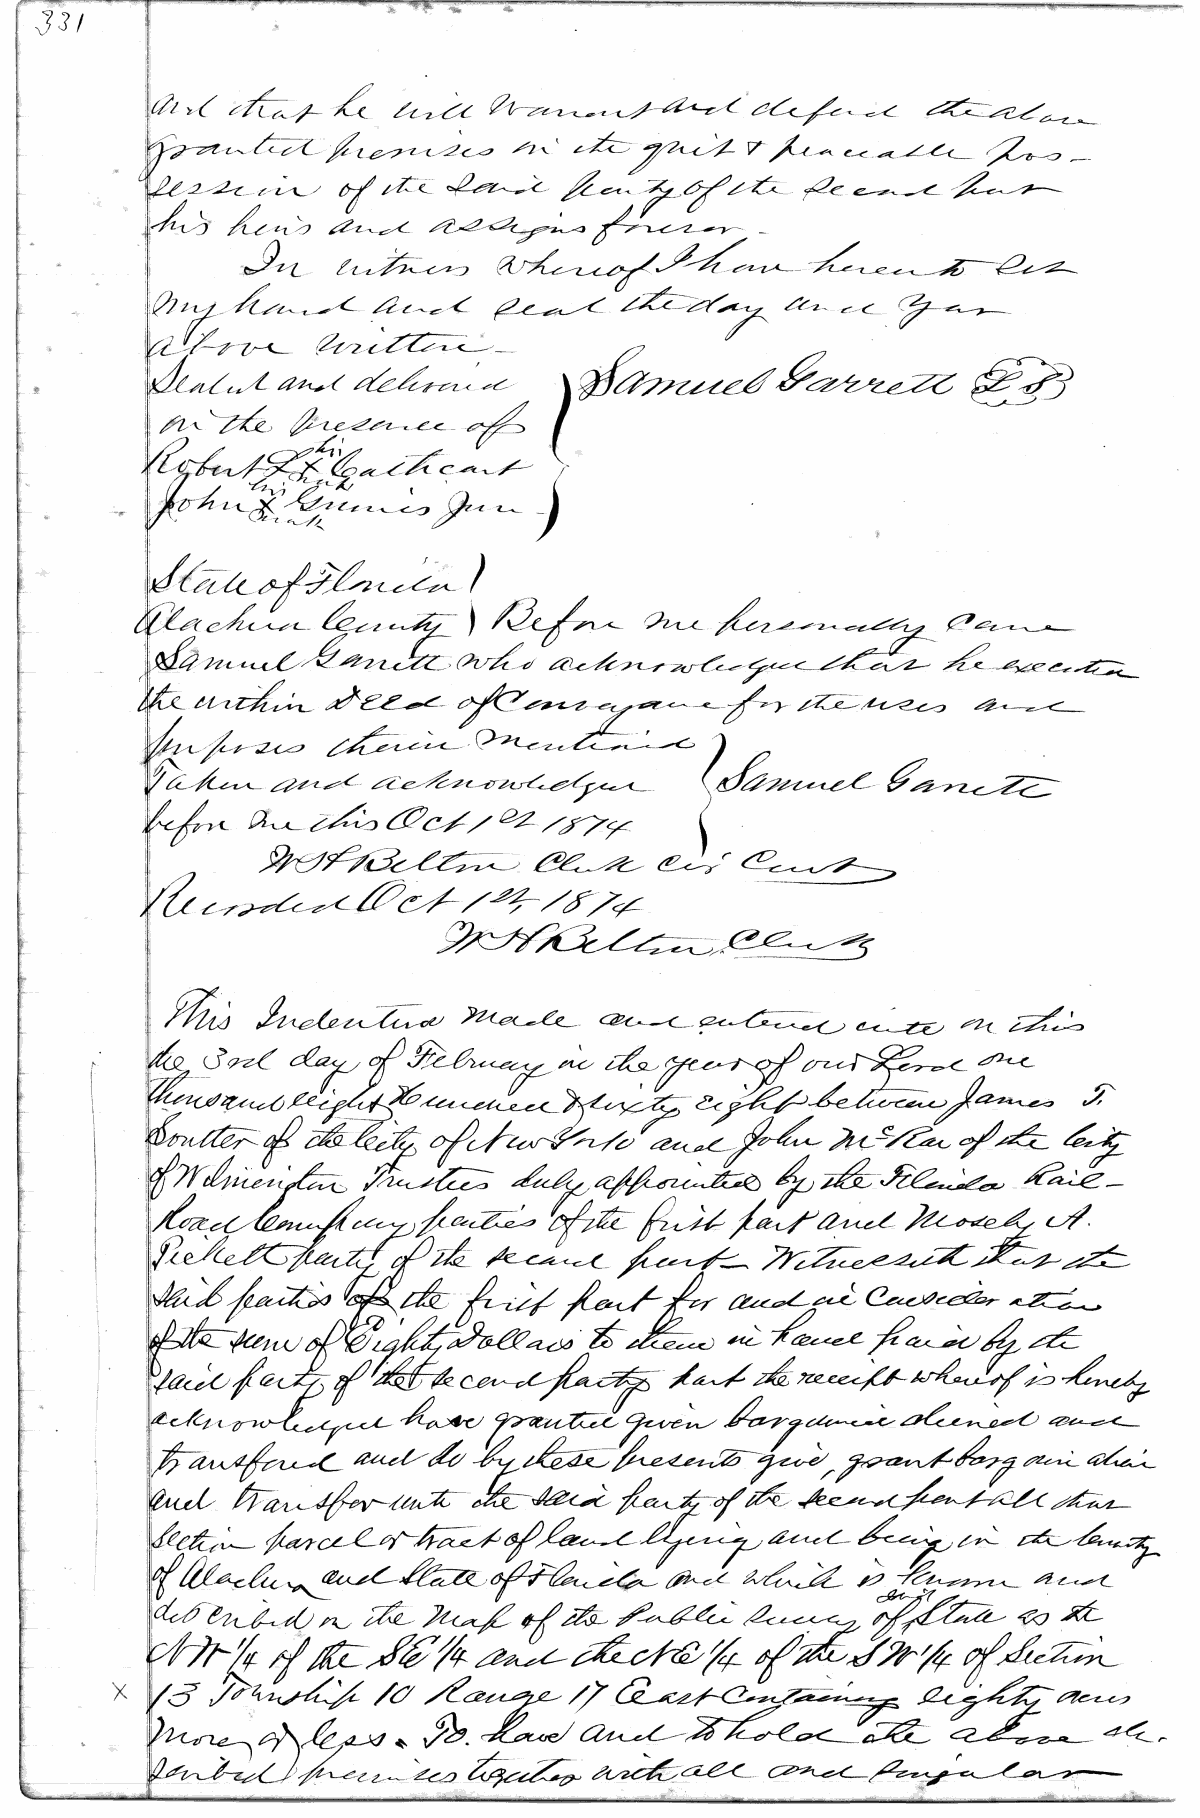 331
and that he will Warrant and defend the above
granted premises in the quiet & peaceable pos-
session of the said party of the second part
his heirs and assigns forever -
In witness whereof I have hereunto set
my hand and seal the day and year
above written -
Sealed and delivered
in the presence of
Samuel Garrett L S
Robert L his X mark Cathcart
John his X mark Grimes Jun
State of Florida
Alachua County Before me personally came
Samuel Garrett who acknowledged that he executed
the within Deed of Conveyance for the uses and
purposes therein mentioned
Taken and acknowledged
Samuel Garrett
before me this Oct 1st 1874
W H Belton Clerk Cir Court
Recorded Oct 1st, 1874
W H Belton Clerk
This Indenture made and entered into on this
the 3rd day of February in the year of our Lord one
thousand eight Hundred & sixty eight between James T.
Soutter of the City of New York and John McRae of the City
of Wilmington Trustees duly appointed by the Florida Rail-
Road Company parties of the first part and Mosely A.
Pickett party of the second part - Witnesseth that the
said parties of the first part for and in Consideration
of the sum of Eighty Dollars to them in hand paid by the
said party of the second party part the receipt whereof is hereby
acknowledged have granted given bargained aliened and
transfered and do by these presents give, grant bargain alien
and transfer unto the said party of the second part all that
section parcel or tract of land lying and being in the County
of Alachua and State of Florida and which is known and
described on the Map of the Public survey of said State as the
NW 1/4 of the SE 1/4 and the NE 1/4 of the SW 1/4 of Section
X 13 Township 10 Range 17 East Containing eighty acres
more or less. To have and to hold the above de-
scribed premises together with all and singular